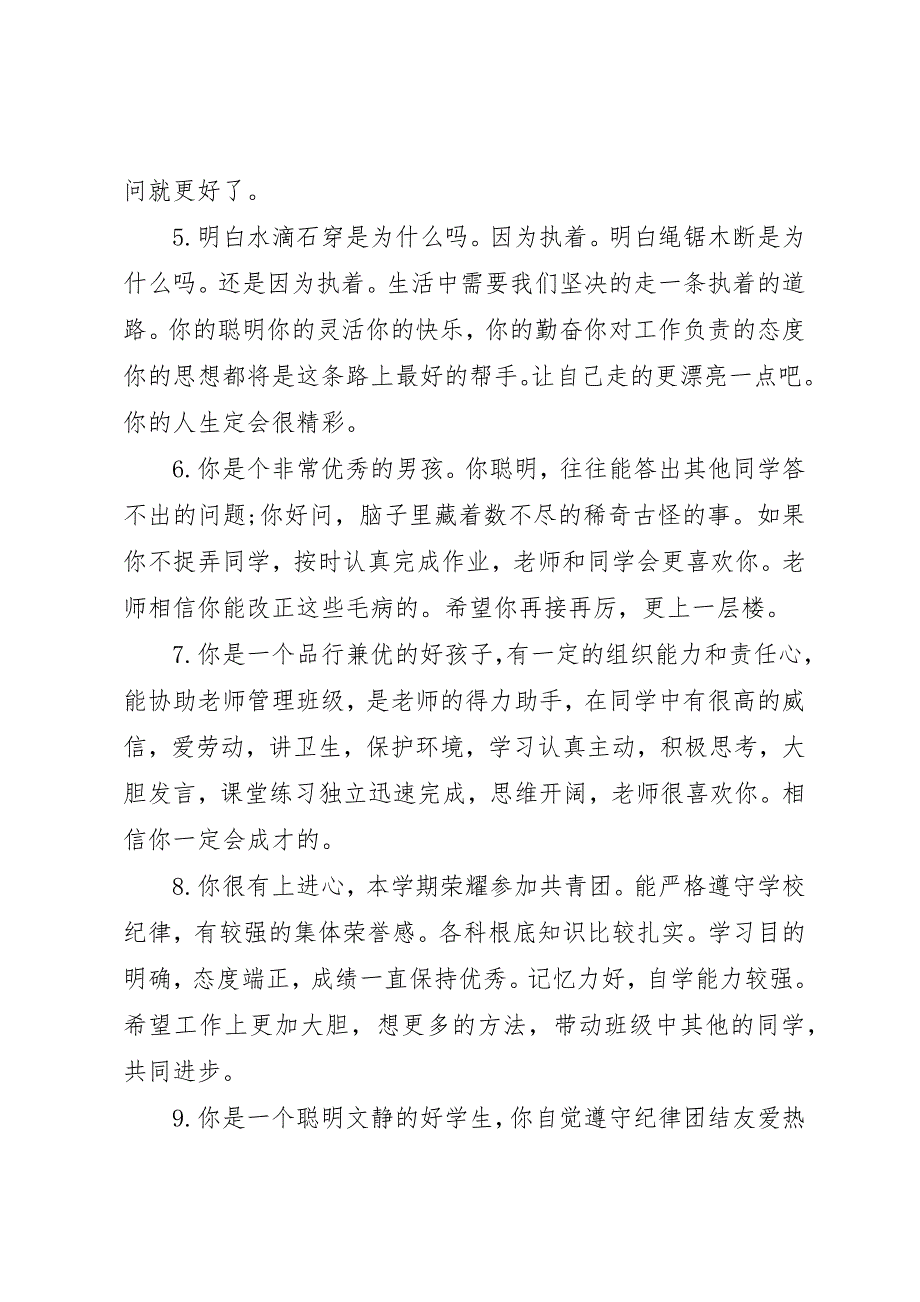 问就更好了。
5.明白水滴石穿是为什么吗。因为执着。明白绳锯木断是为
什么吗。还是因为执着。生活中需要我们坚决的走一条执着的道
路。你的聪明你的灵活你的快乐，你的勤奋你对工作负责的态度
你的思想都将是这条路上最好的帮手。让自己走的更漂亮一点吧。
你的人生定会很精彩。
6.你是个非常优秀的男孩。你聪明，往往能答出其他同学答
不出的问题;你好问，脑子里藏着数不尽的稀奇古怪的事。如果
你不捉弄同学，按时认真完成作业，老师和同学会更喜欢你。老
师相信你能改正这些毛病的。希望你再接再厉，更上一层楼。
7.你是一个品行兼优的好孩子，有一定的组织能力和责任心，
能协助老师管理班级，是老师的得力助手，在同学中有很高的威
信，爱劳动，讲卫生，保护环境，学习认真主动，积极思考，大
胆发言，课堂练习独立迅速完成，思维开阔，老师很喜欢你。相
信你一定会成才的。
8.你很有上进心，本学期荣耀参加共青团。能严格遵守学校
纪律，有较强的集体荣誉感。各科根底知识比较扎实。学习目的
明确，态度端正，成绩一直保持优秀。记忆力好，自学能力较强。
希望工作上更加大胆，想更多的方法，带动班级中其他的同学，
共同进步。
9.你是一个聪明文静的好学生，你自觉遵守纪律团结友爱热